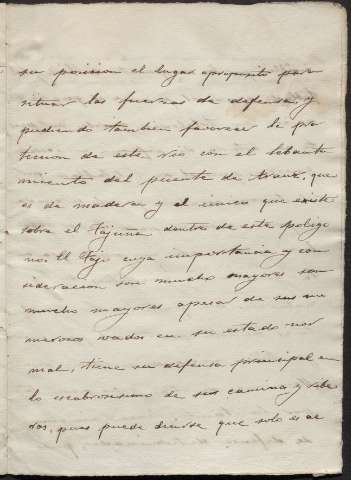 su posicion el lugar aproposito para
situar las fuerzas de defensa, y
pudiendo tambien favorecer la pro
teccion de este rio con el lebanta
miento del puente de       que
es de madera y el unico que existe
sobre el Tajuña dentro de este polígo
no. El Tajo cuya importancia y con
sideracion son mucho mayores son
mucho mayores apesar de sus nu
merosos vados en su estado nor
mal, tiene su defensa principal en
lo escabrosisimo de sus caminos y ribe
ras, pues puede decirse que solo es ac